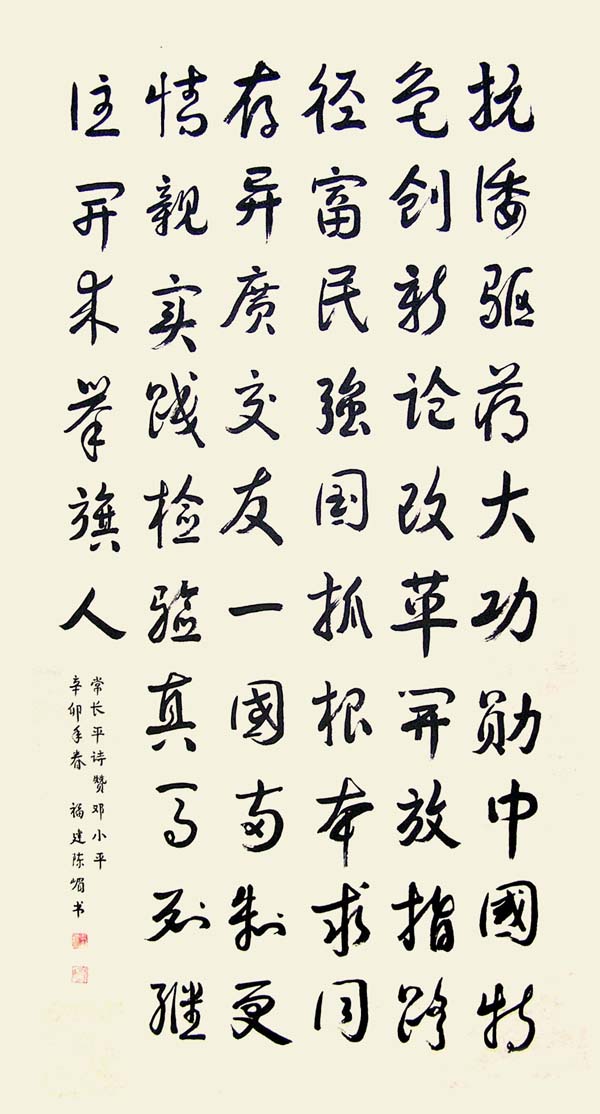 抗倭驱蒋大功勋中國特
色创新论改革開放指路
径富民強国抓根本求同
存异廣交友一國两制更
情親实践检验真马列继
往開来举旗人
常长平诗赞邓小平
辛卯年春 福建陈嵋书